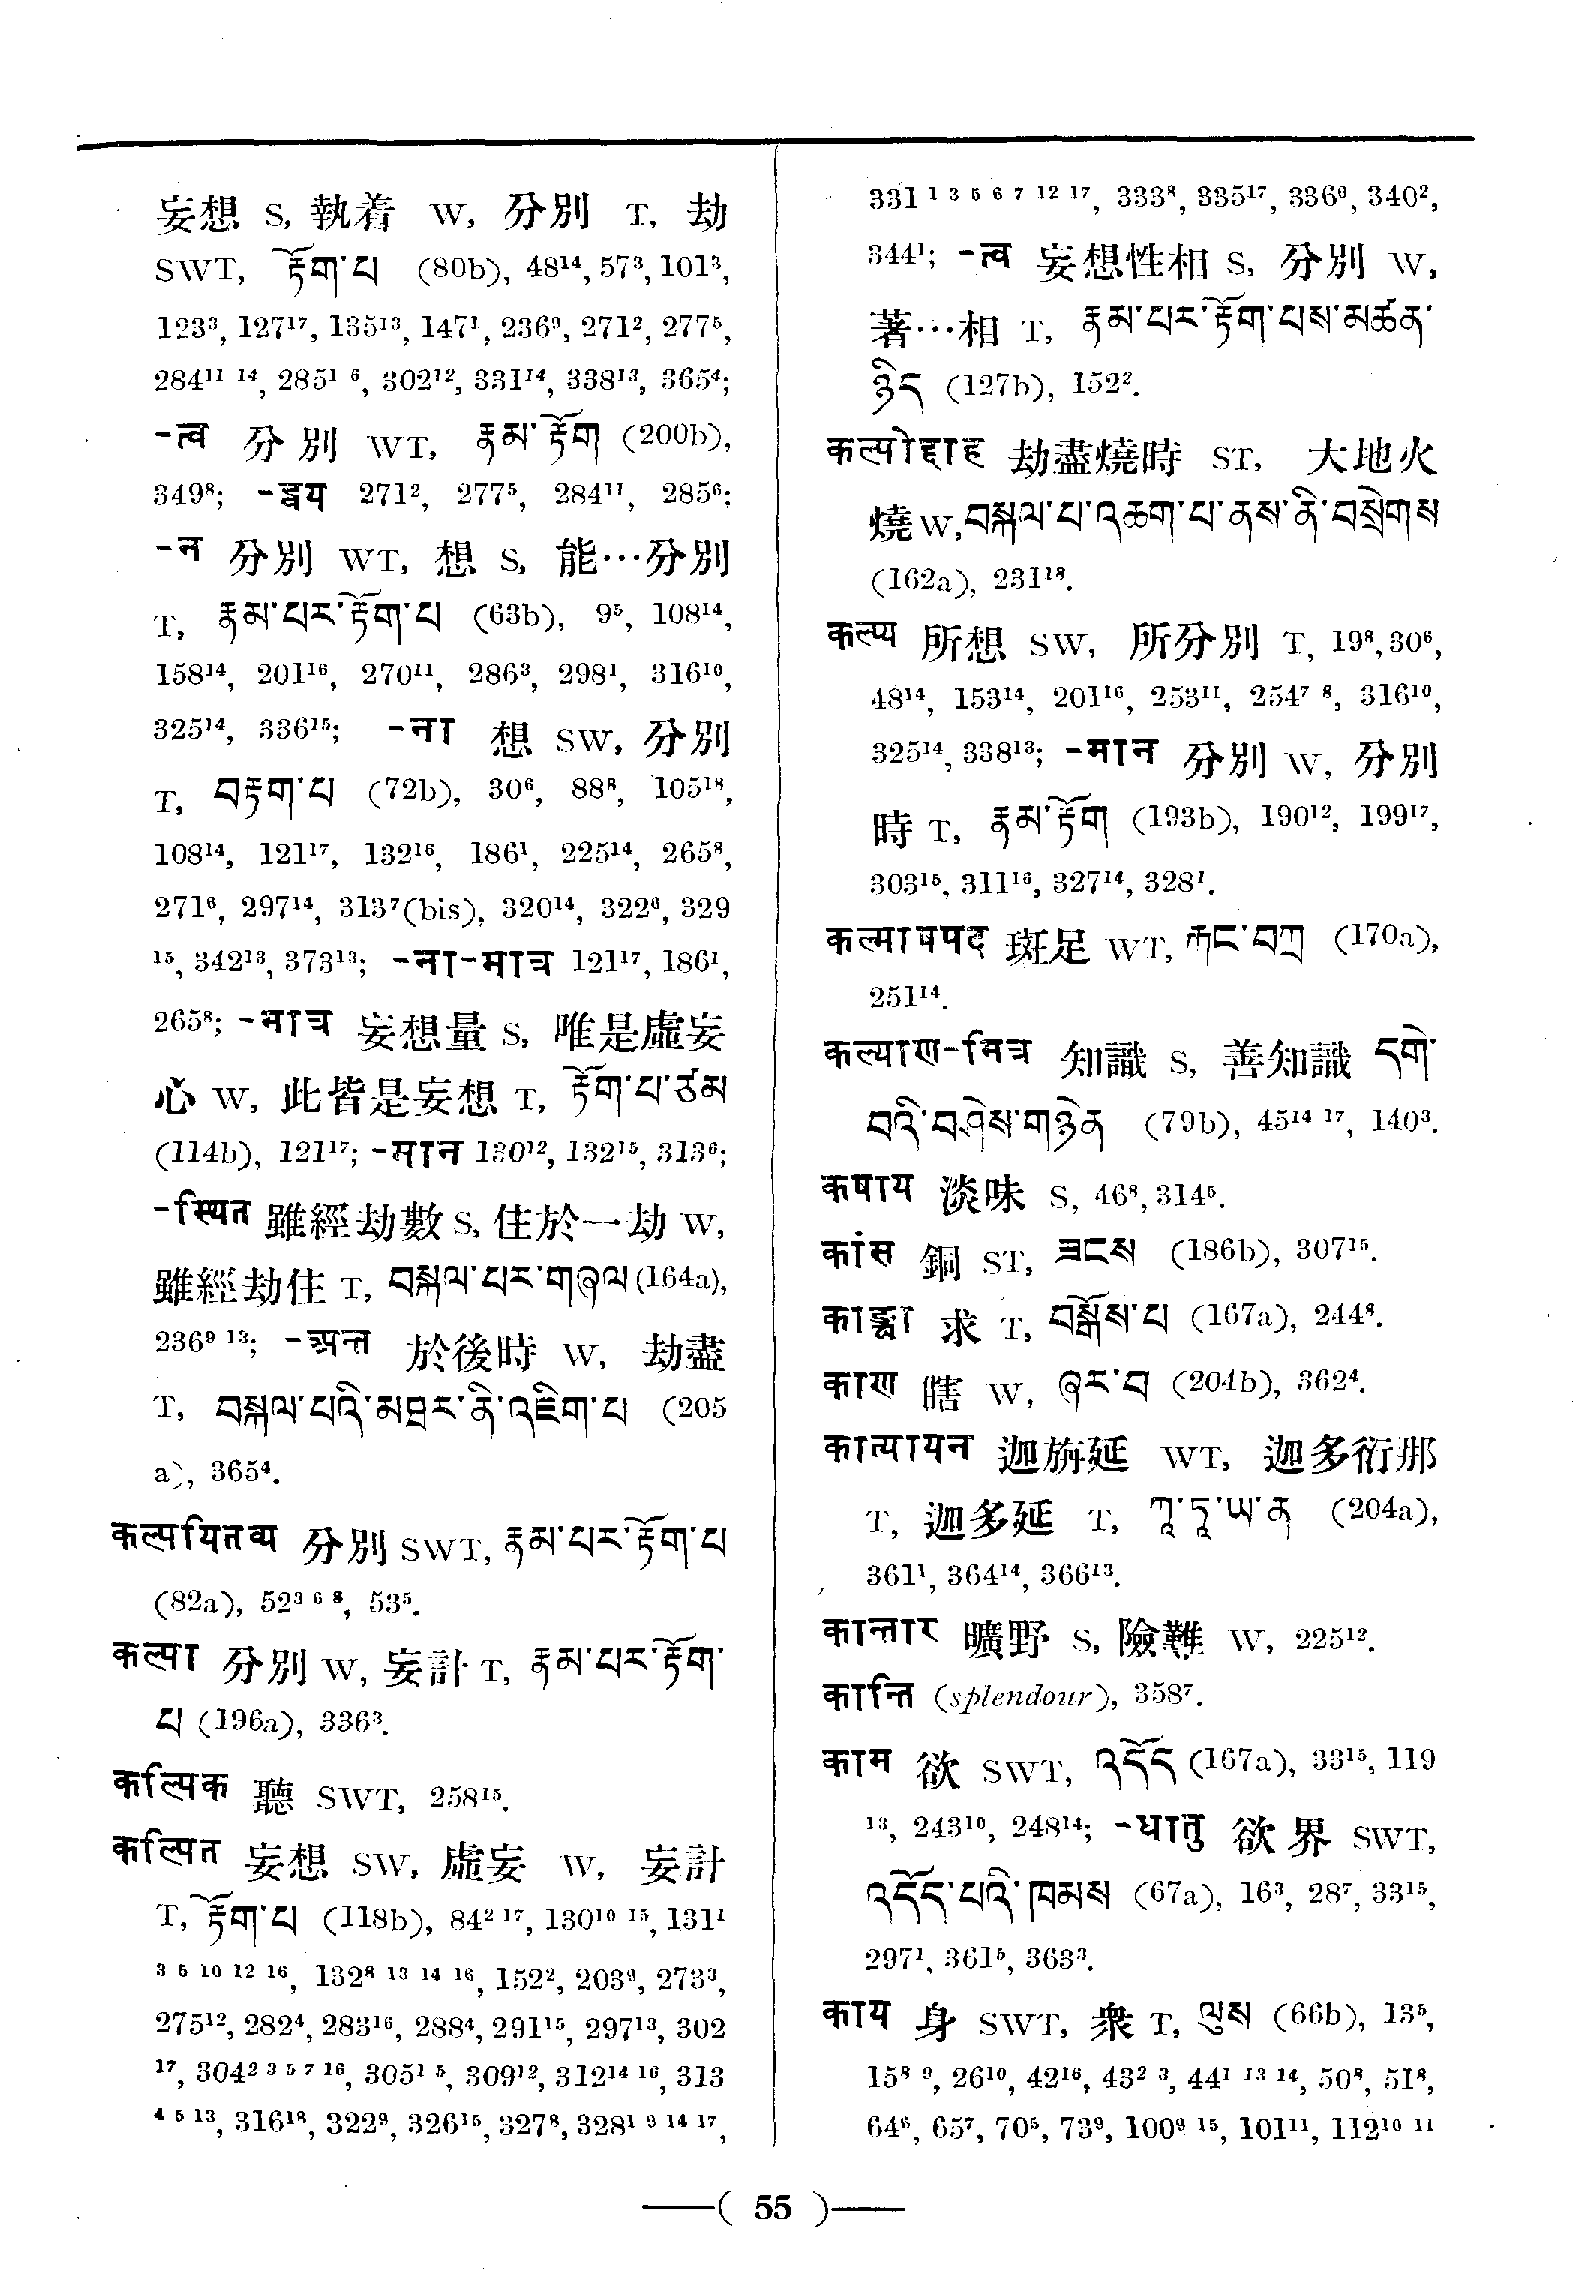 妄想 S, 執着 W, 分別 T, 劫
SWT, རྟོག་པ (80b), 48¹⁴, 57³, 101³,
123³, 127¹⁷, 135¹³, 147¹, 236⁹, 271², 277⁵,
284¹¹ ¹⁴, 285¹ ⁶, 302¹², 331¹⁴, 338¹³, 365⁴;
-त्व 分別 WT, རྣམ་རྟོག (200b),
349⁸; -द्वय 271², 277⁵, 284¹¹, 285⁶;
-न 分別 WT, 想 S, 能…分別
T, རྣམ་པར་རྟོག་པ (63b), 9⁵, 108¹⁴,
158¹⁴, 201¹⁶, 270¹¹, 286³, 298¹, 316¹⁰,
325¹⁴, 336¹⁵; -ना 想 SW, 分別
T, བརྟག་པ (72b), 30⁶, 88⁸, 105¹⁸,
108¹⁴, 121¹⁷, 132¹⁶, 186¹, 225¹⁴, 265⁸,
271⁶, 297¹⁴, 313⁷(bis), 320¹⁴, 322⁶, 329
¹⁵, 342¹³, 373¹³; -ना-मात्र 121¹⁷, 186¹,
265⁸; -मात्र 妄想量 S, 唯是虛妄
心 W, 此皆是妄想 T, རྟོག་པ་ཙམ
(114b), 121¹⁷; -मान 130¹², 132¹⁵, 313⁶;
-स्थित 雖經劫數 S, 住於一劫 W,
雖經劫住 T, བསྐལ་པར་གཞལ (164a),
236⁹ ¹³; -अन्त 於後時 W, 劫盡
T, བསྐལ་པའི་མཐར་ནི་འཇིག་པ (205
a), 365⁴.
कल्पयितव्य 分別 SWT, རྣམ་པར་རྟོག་པ
(82a), 52³ ⁶ ⁸, 53⁵.
कल्पा 分別 W, 妄計 T, རྣམ་པར་རྟོག་
པ (196a), 336³.
कल्पिक 聽 SWT, 258¹⁵.
कल्पित 妄想 SW, 虛妄 W, 妄計
T, རྟོག་པ (118b), 84² ¹⁷, 130¹⁰ ¹⁵, 131¹
³ ⁵ ¹⁰ ¹² ¹⁶, 132⁸ ¹³ ¹⁴ ¹⁶, 152², 203⁹, 273³,
275¹², 282⁴, 283¹⁶, 288⁴, 291¹⁵, 297¹³, 302
¹⁷, 304² ³ ⁵ ⁷ ¹⁶, 305¹ ⁵, 309¹², 312¹⁴ ¹⁶, 313
⁴ ⁵ ¹³, 316¹⁸, 322⁹, 326¹⁵, 327⁸, 328¹ ⁹ ¹⁴ ¹⁷,
331¹ ³ ⁵ ⁶ ⁷ ¹² ¹⁷, 333⁸, 335¹⁷, 336⁹, 340²,
344¹; -त्व 妄想性相 S, 分別 W,
著…相 T, རྣམ་པར་རྟོག་པས་མཚན་
ཉིད (127b), 152².
कल्पोद्दाह 劫盡燒時 ST, 大地火
燒 W, བསྐལ་པ་འཆག་པ་ནས་ནི་བསྲེགས
(162a), 231¹⁸.
कल्प्य 所想 SW, 所分別 T, 19⁸, 30⁶,
48¹⁴, 153¹⁴, 201¹⁶, 253¹¹, 254⁷ ⁸, 316¹⁰,
325¹⁴, 338¹³; -मान 分別 W, 分別
時 T, རྣམ་རྟོག (193b), 190¹², 199¹⁷,
303¹⁵, 311¹⁶, 327¹⁴, 328¹.
कल्माषपद 斑足 WT, རྐང་བཀྲ (170a),
251¹⁴.
कल्याण-मित्र 知識 S, 善知識 དགེ་
བའི་བཤེས་གཉེན (79b), 45¹⁴ ¹⁷, 140³.
कषाय 淡味 S, 46⁸, 314⁵.
कांस 銅 ST, ཟངས (186b), 307¹⁵.
काङ्क्षा 求 T, བསྒོས་པ (167a), 244⁸.
काण 瞎 W, ཞར་བ (204b), 362⁴.
कात्यायन 迦旃延 WT, 迦多衍那
T, 迦多延 T, ཀཱ་ཏཱ་ཡ་ན (204a),
361¹, 364¹⁴, 366¹³.
कान्तार 曠野 S, 險難 W, 225¹².
कान्ति (splendour), 358⁷.
काम 欲 SWT, འདོད (167a), 33¹⁵, 119
¹³, 243¹⁰, 248¹⁴; -धातु 欲界 SWT,
འདོད་པའི་ཁམས (67a), 16³, 28⁷, 33¹⁵,
297¹, 361⁵, 363³.
काय 身 SWT, 衆 T, ལུས (66b), 13⁵,
15⁸ ⁹, 26¹⁰, 42¹⁶, 43² ³, 44¹ ¹³ ¹⁴, 50⁸, 51⁸,
64⁶, 65⁷, 70⁵, 73⁹, 100⁹ ¹⁵, 101¹¹, 112¹⁰ ¹¹
—( 55 )—